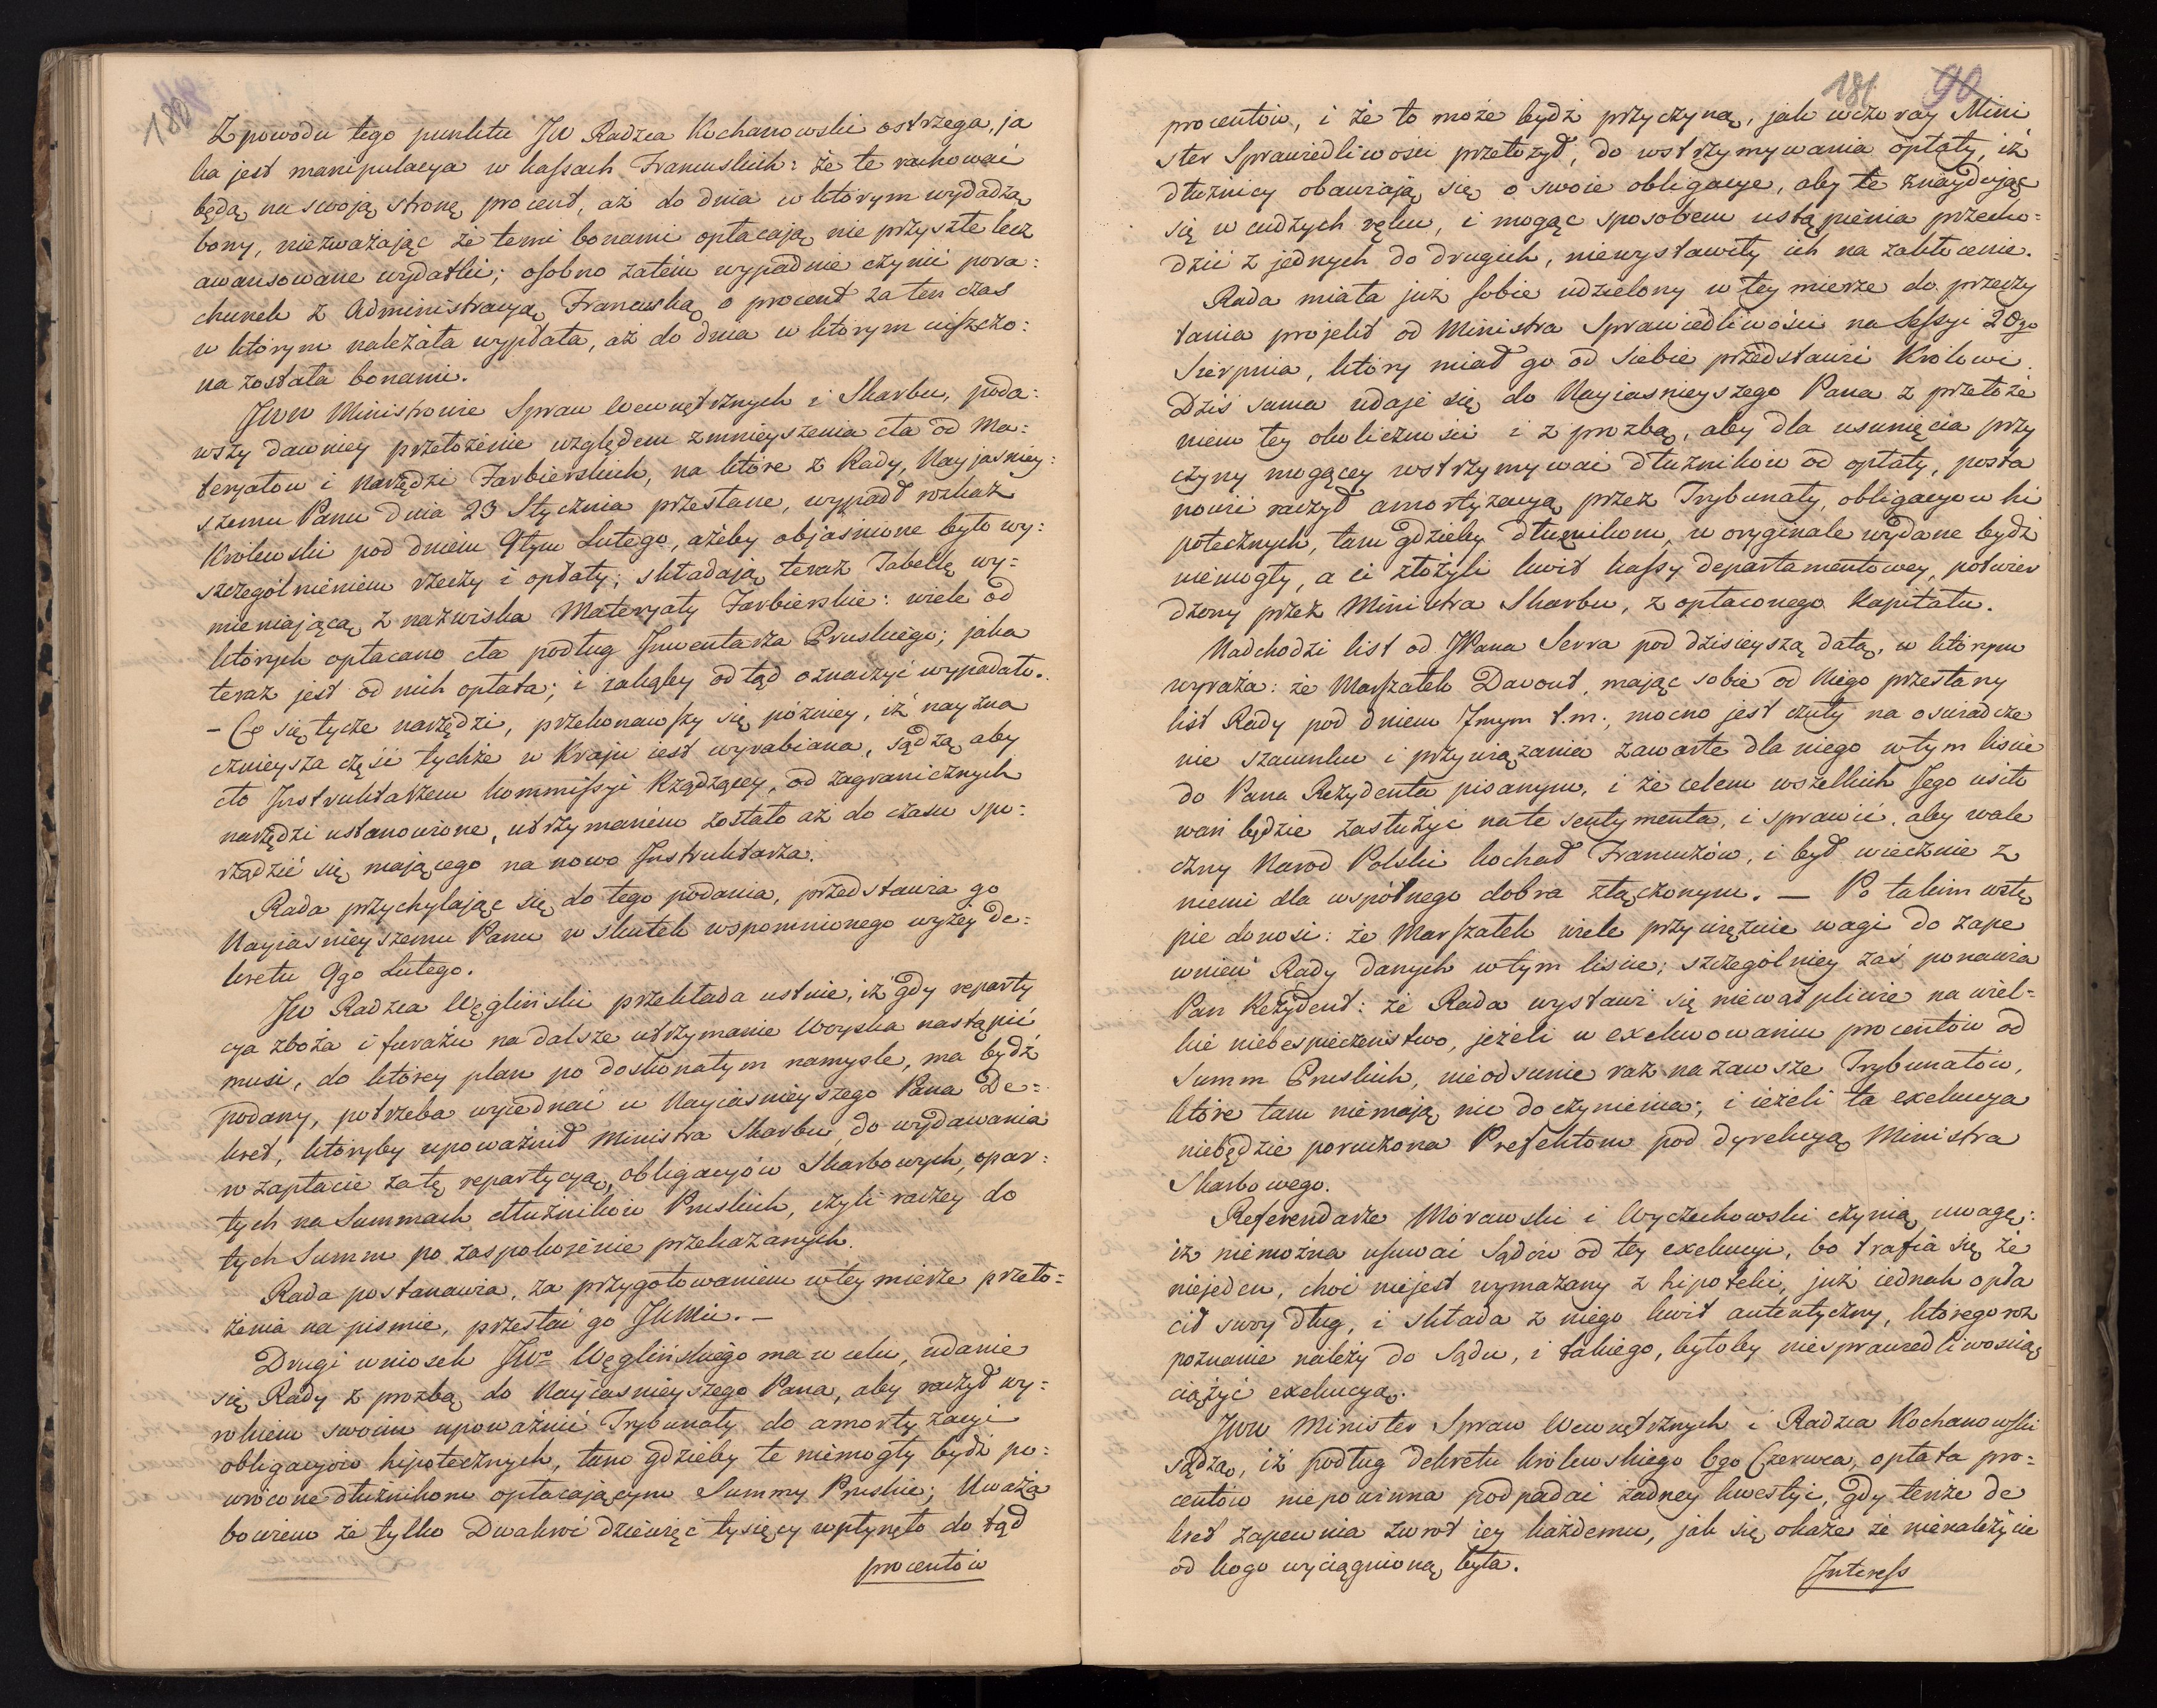 180
Z powodu tego punktu JW Radzca Kochanowski ostrzega, ja
ka jest manipulacya w kassach Francuskich: że te rachować
będą na swoją stronę procent, aż do dnia w którym wydadzą
bony, niezważając że temi bonami opłacają nie przyszłe lecz
awansowane wydatki; osobno zatém wypadnie czynić pora:
chunek z Administracyą Francuską o procent za ten czas
w którym należała wypłata, aż do dnia w którym uiszczo:
na została bonami.
JWW Ministrowie Spraw Wewnętrznych i Skarbu, poda:
wszy dawniey przełożenie względem zmnieyszenia cła od Ma:
teryałow i narzędzi Farbierskich, na które z Rady, Nayjaśniey:
szemu Panu dnia 23 Stycznia przesłane, wypadł rozkaz
Krolewski pod dniem 9tym Lutego, ażeby objaśnione było wy:
szczegolnieniem rzeczy i opłaty; składają teraz Tabellę wy=
mieniającą z nazwiska Materyały Farbierskie: wiele od
których opłacano cła podług Inwentarza Pruskiego; jaka
teraz jest od nich opłata; i jakąby odtąd oznaczyć wypadało.
- Co się tycze narzędzi, przekonawszy się pózniey, iż nayzna
cznieysza część tychże w Kraju iest wyrabiana, sądzą aby
cło Instruktarzem kommissyi Rządzącey, od zagranicznych
narzędzi ustanowione, utrzymaniem zostało aż do czasu spo:
rządzić się mającego na nowo Instruktarza.
Rada przychylając się do tego podania, przedstawia go
Nayiasnieyszemu Panu w skutek wspomnionego wyżey de=
kretu 9go Lutego.
JW Radzca Węgliński przekłada ustnie, iż gdy reparty
cya zboża i furażu na dalsze utrzymanie Woyska nastąpić
musi, do którey plan po doskonałym namysle, ma bydź
podany, potrzeba wyiednać u Nayiasnieyszego Pana De=
kret, któryby upoważnił Ministra Skarbu do wydawania
w zapłacie za tę repartycyą, obligacyów Skarbowych, opar:
tych na Summach dłużnikow Pruskich, czyli raczey do
tych Summ po zaspokoienie przekazanych.
Rada postanawia, za przygotowaniem w tey mierze przeło=
żenia na pismie, przesłać go JKMci. -
Drugi wniosek JWo Węglińskiego ma w celu, udanie
się Rady z prozbą do Nayiasnieyszego Pana, aby raczył wy=
rokiem swoim upoważnić Trybunały do amortyzacyi
obligacyiow hipotecznych, tam gdzieby te niemogły bydź po=
wrócone dłużnikom opłacającym Summy Pruskie; Uważa
bowiem że tylko Dwakroć dziewięć tysięcy wpłynęło do tąd
procentów
181 90
procentów, i że to może bydź przyczyną, jak wczoray Mini
ster Sprawiedliwości przełożył, do wstrzymywania opłaty, iż
dłużnicy obawiają się o swoie obligacye, aby te znaydując
się w cudzych ręku, i mogąc sposobem ustąpienia przecho=
dzić z jednych do drugich, niewystawiły ich na zakłocenie.
Rada miała już sobie udzielony w tey mierze do przeczy
tania projekt od Ministra Sprawiedliwości na Sessyi 20go
Sierpnia, który miał go od siebie przedstawić Krolowi.
Dziś sama udaje się do Nayiasnieyszego Pana z przełoże
niem tey okoliczności i z prozbą, aby dla usunięcia przy
czyny mogącey wstrzymywać dłużników od opłaty, posta
nowić raczył amortyzacyą przez Trybunały, obligacyow hi
potecznych, tam gdzieby dłużnikom, w oryginale wydane bydź
niemogły, a ci złożyli kwit kassy departamentowey, potwier
dzony przez Ministra Skarbu, z opłaconego Kapitału.
Nadchodzi list od JPana Serra pod dzisieyszą datą, w którym
wyraża: że Marszałek Davout, mając sobie od niego przesłany
list Rady pod dniem 7mym t.m., mocno jest czuły na oswiadcze
nie szacunku i przywiązania zawarte dla niego w tym liscie
do Pana Rezydenta pisanym, i że celem wszelkich Jego usiło
wań będzie zasłużyć na te sentymenta, i sprawić, aby wale
czny Narod Polski kochał Francuzów, i był wiecznie z
niemi dla wspólnego dobra złączonym. - Po takim wstę
pie donosi: że Marszałek wiele przywięzuie wagi do zape
wnień Rady danych w tym liscie; szczególniey zaś ponawia
Pan Rezydent: że Rada wystawi się niewątpliwie na wiel=
kie niebespieczeństwo, jeżeli w exekwowaniu procentów od
Summ Pruskich, nieodsunie raz na zawsze Trybunałów,
które tam niemaią nic do czynienia; i ieżeli ta exekucya
niebędzie poruczona Prefektom pod dyrekcyą Ministra
Skarbowego.
Referendarze Morawski i Wyczechowski czynią uwagę:
iż niemożna usuwać Sądów od tey exekucyi, bo trafia się że
niejeden, choć niejest wymazany z hipoteki, już iednak opła
cił swoy dług, i składa z niego kwit autentyczny, którego roz
poznanie należy do Sądu, i takiego, byłoby niesprawiedliwością
ciążyć exekucyą.
JWW Minister Spraw Wewnętrznych i Radzca Kochanowski
sądzą, iż podług dekretu krolewskiego 6go Czerwca, opłata pro=
centów niepowinna podpadać żadney kwestyi, gdy tenże de
kret zapewnia zwrot iey każdemu, jak się okaże że nienależycie
od kogo wyciągnioną była.
Interess